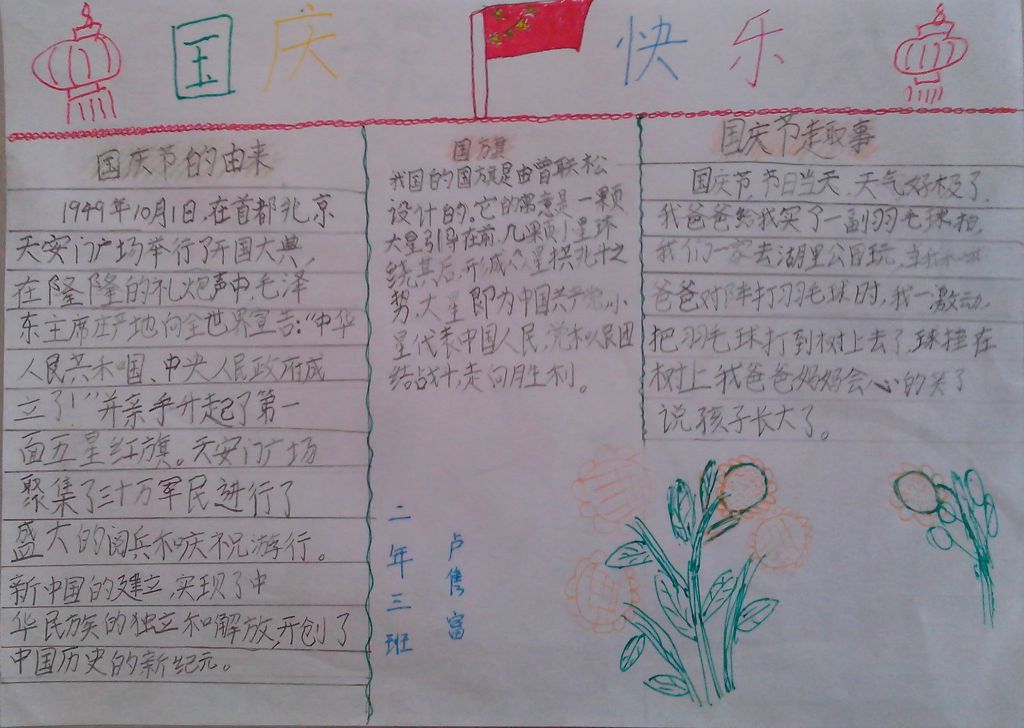 国庆快乐
国庆节的由来
1949年10月1日,在首都北京
天安门广场举行了开国大典,
在隆隆的礼炮声中,毛泽
东主席庄严地向全世界宣告:“中华
人民共和国、中央人民政府成
立了!”并亲手升起了第一
面五星红旗。天安门广场
聚集了三十万军民进行了
盛大的阅兵和庆祝游行。
新中国的建立,实现了中
华民族的独立和解放,开创了
中国历史的新纪元。
国旗
我国的国旗是由曾联松
设计的。它的寓意是一颗
大星引导在前,几颗小星环
绕其后,形成众星拱北之
势,大星即为中国共产党,小
星代表中国人民,党和人民团
结战斗,走向胜利。
二年三班
卢隽富
国庆节趣事
国庆节,节日当天,天气好极了,
我爸爸给我买了一副羽毛球拍,
我们一家去湖里公园玩,
爸爸对阵打羽毛球时,我一激动,
把羽毛球打到树上去了,球挂在
树上,我爸爸妈妈会心的笑了
说孩子长大了。